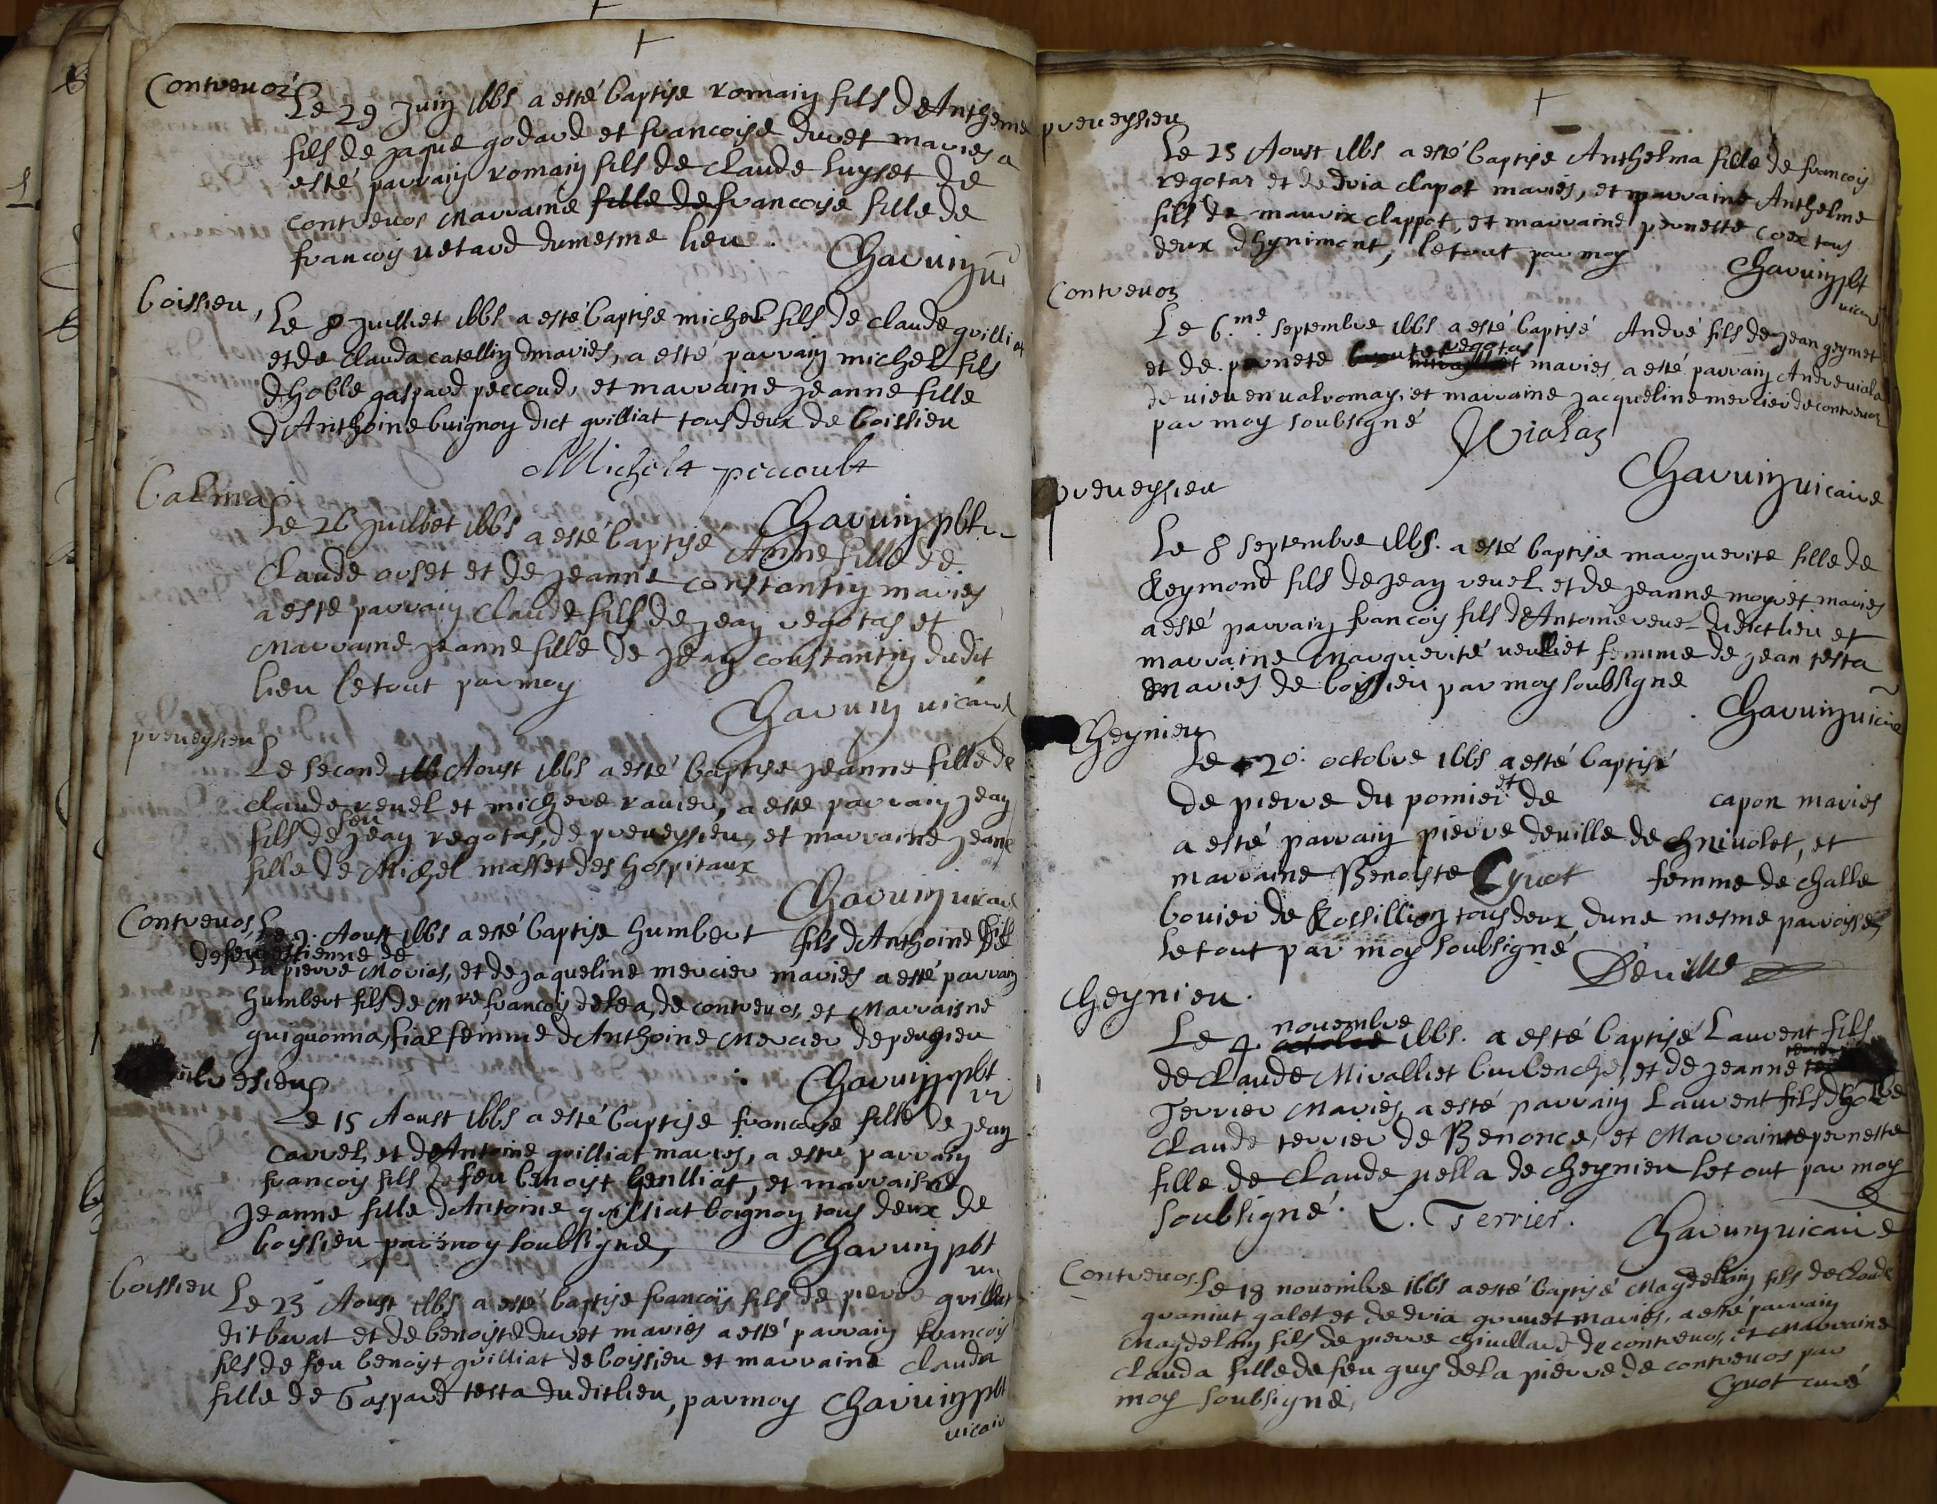 Contrevoz
Le 29 Juin 1665 a esté baptise romain fils de Antheme
fils de Jaque godard et francoise duret maries a
esté parrain romain fils de claude luyset de
contrevos Marraine fille de francoise fille de
francois vetard du mesme lieu.
Charvin
boissieu,
Le 8 Juilliet 1665 a esté baptise michel fils de claude quilliat
et de clauda catellin maries, a esté parrain michel fils
d'hoble gaspard peccoud, et marraine Jeanne fille
d'Anthoine buignoy dict quilliat tous deux de boissieu
Michelt peccoult
Charvin pbtr
Le 26 Juilliet 1665 a esté baptise Anne fille de
Claude orset et de Jeanne constantin maries
a esté parrain claude fils de Jean regotas et
Marraine Jeanne fille de Jean constantin dudit
lieu le tout par moy
Charvin vicaire
preveysieu
Le second Aoust 1665 a esté baptise Jeanne fille de
claude revel et michere ravier, a esté parrain Jean
fils de feu Jean regotas, de preveysieu, et marraine Jeane
fille de Michel masset des hospitaux
Charvin vicaire
Contrevos, Le 9. Aoust 1665 a esté baptise humbert fils d'Anthoine fils
de feu estienne de
la pierre Morias, et de Jaqueline mercier maries a esté parrain
humbert fils de Mre francois delea, de contrevos, et Marraisne
guiguonna fial femme d'Anthoine Mercier de pengieu
Charvin pbt
Le 15 Aoust 1665 a esté baptise francoise fille de Jean
Carrel, et de Antoine quilliat maries, a esté parrain
francois fils de feu benoist quilliat, et marraisne
Jeanne fille d'Antoine quilliat boignoy tous deux de
boyssieu par moy soubsigné,
Charvin pbt
boissieu
Le 23 Aoust 1665 a esté baptise francois fils de pierre quilliat
dit barat et de benoiste duret maries a esté parrain francois
fils de feu benoist quilliat de boissieu et marraine clauda
fille de Gaspard testa du dit lieu, par moy Charvin pbt
vicair
preveysieu
Le 25 Aoust 1665 a esté baptise Anthelma fille de francois
regotas et de dvia clapot maries, et parraine Anthelme
fils de mauris clappot, et marraine pernette coex tous
deux d'hynimont, le tout par moy
Charvin pbt
vicaire
Contrevoz
Le 6.me septembre 1665 a esté baptisé André fils de Jean geymet
et de pernete regotas maries, a esté parrain Andre viala
de vieu en valromay, et marraine Jacqueline mercier de contrevoz
par moy soubsigné
Violaz
Charvin vicaire
preveysieu
Le 8 septembre 1665. a esté baptise marguerite fille de
Reymond fils de Jean revel et de Jeanne moyret maries
a esté parrain francois fils de Antoine revel dudict lieu et
marraine Marguerite veulliet femme de Jean testa
maries de boissieu par moy soubsigne
Charvin vicaire
Cheynieu
Le 20. octobre 1665 a esté baptisé
de pierre du pomier et de capon maries
a esté parrain pierre deville de chnivolet, et
marraine Benoiste Cyvot femme de challe
bovier de Rossillion tous deux d'une mesme parroisse
le tout par moy soubsigné
Deville
Cheynieu.
Le 4 novembre
octobre 1665. a esté baptisé Laurent fils
de claude Mivalliet burlenche, et de Jeanne
Terrier Maries, a esté parrain Laurent fils d'hoble
Claude terrier de Benonce, et Marraine pernette
fille de claude vella de cheynieu le tout par moy
soubsigné. L. Terrier.
Charvin vicaire
Contrevos. Le 18 novembre 1665 a esté baptisé Magdelain fils de claude
quaniut galet et de dvia gruuet maries, a esté parrain
Magdelain fils de pierre chivillard de contrevos, et Marraine
clauda fille de feu guy de la pierre de contrevos par
moy soubsigné,
Cyvot curé